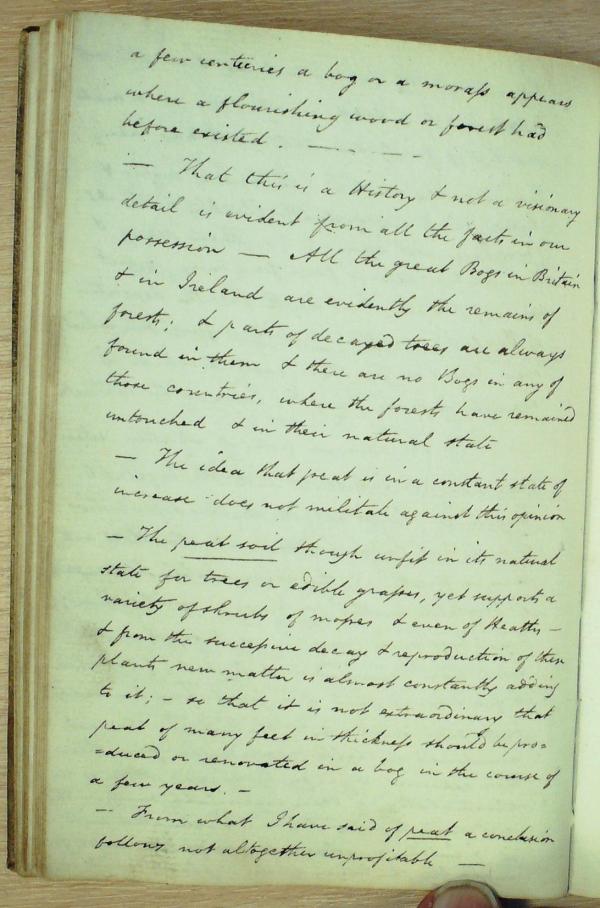 a few centuries a bog or a morass appears
where a flourishing wood or forest had
before existed. — — — —
— That this is a History & not a visionary
detail is evident from all the facts in our
possession — All the great Bogs in Britain
& in Ireland are evidently the remains of
forests; & parts of decayed trees are always
found in them & there are no Bogs in any of
those countries, where the forests have remained
untouched & in their natural state
— The idea that peat is in a constant state of
increase does not militate against this opinion
— The peat soil though unfit in its natural
state for trees or edible grasses, yet supports a
variety of shrubs of mosses & even of Heaths —
& from the successive decay & reproduction of these
plants new matter is almost constantly adding
to it; — so that it is not extraordinary that
peat of many feet in thickness should be pro=
=duced or renovated in a bog in the course of
a few years. —
— From what I have said of peat a conclusion
follows not altogether unprofitable —